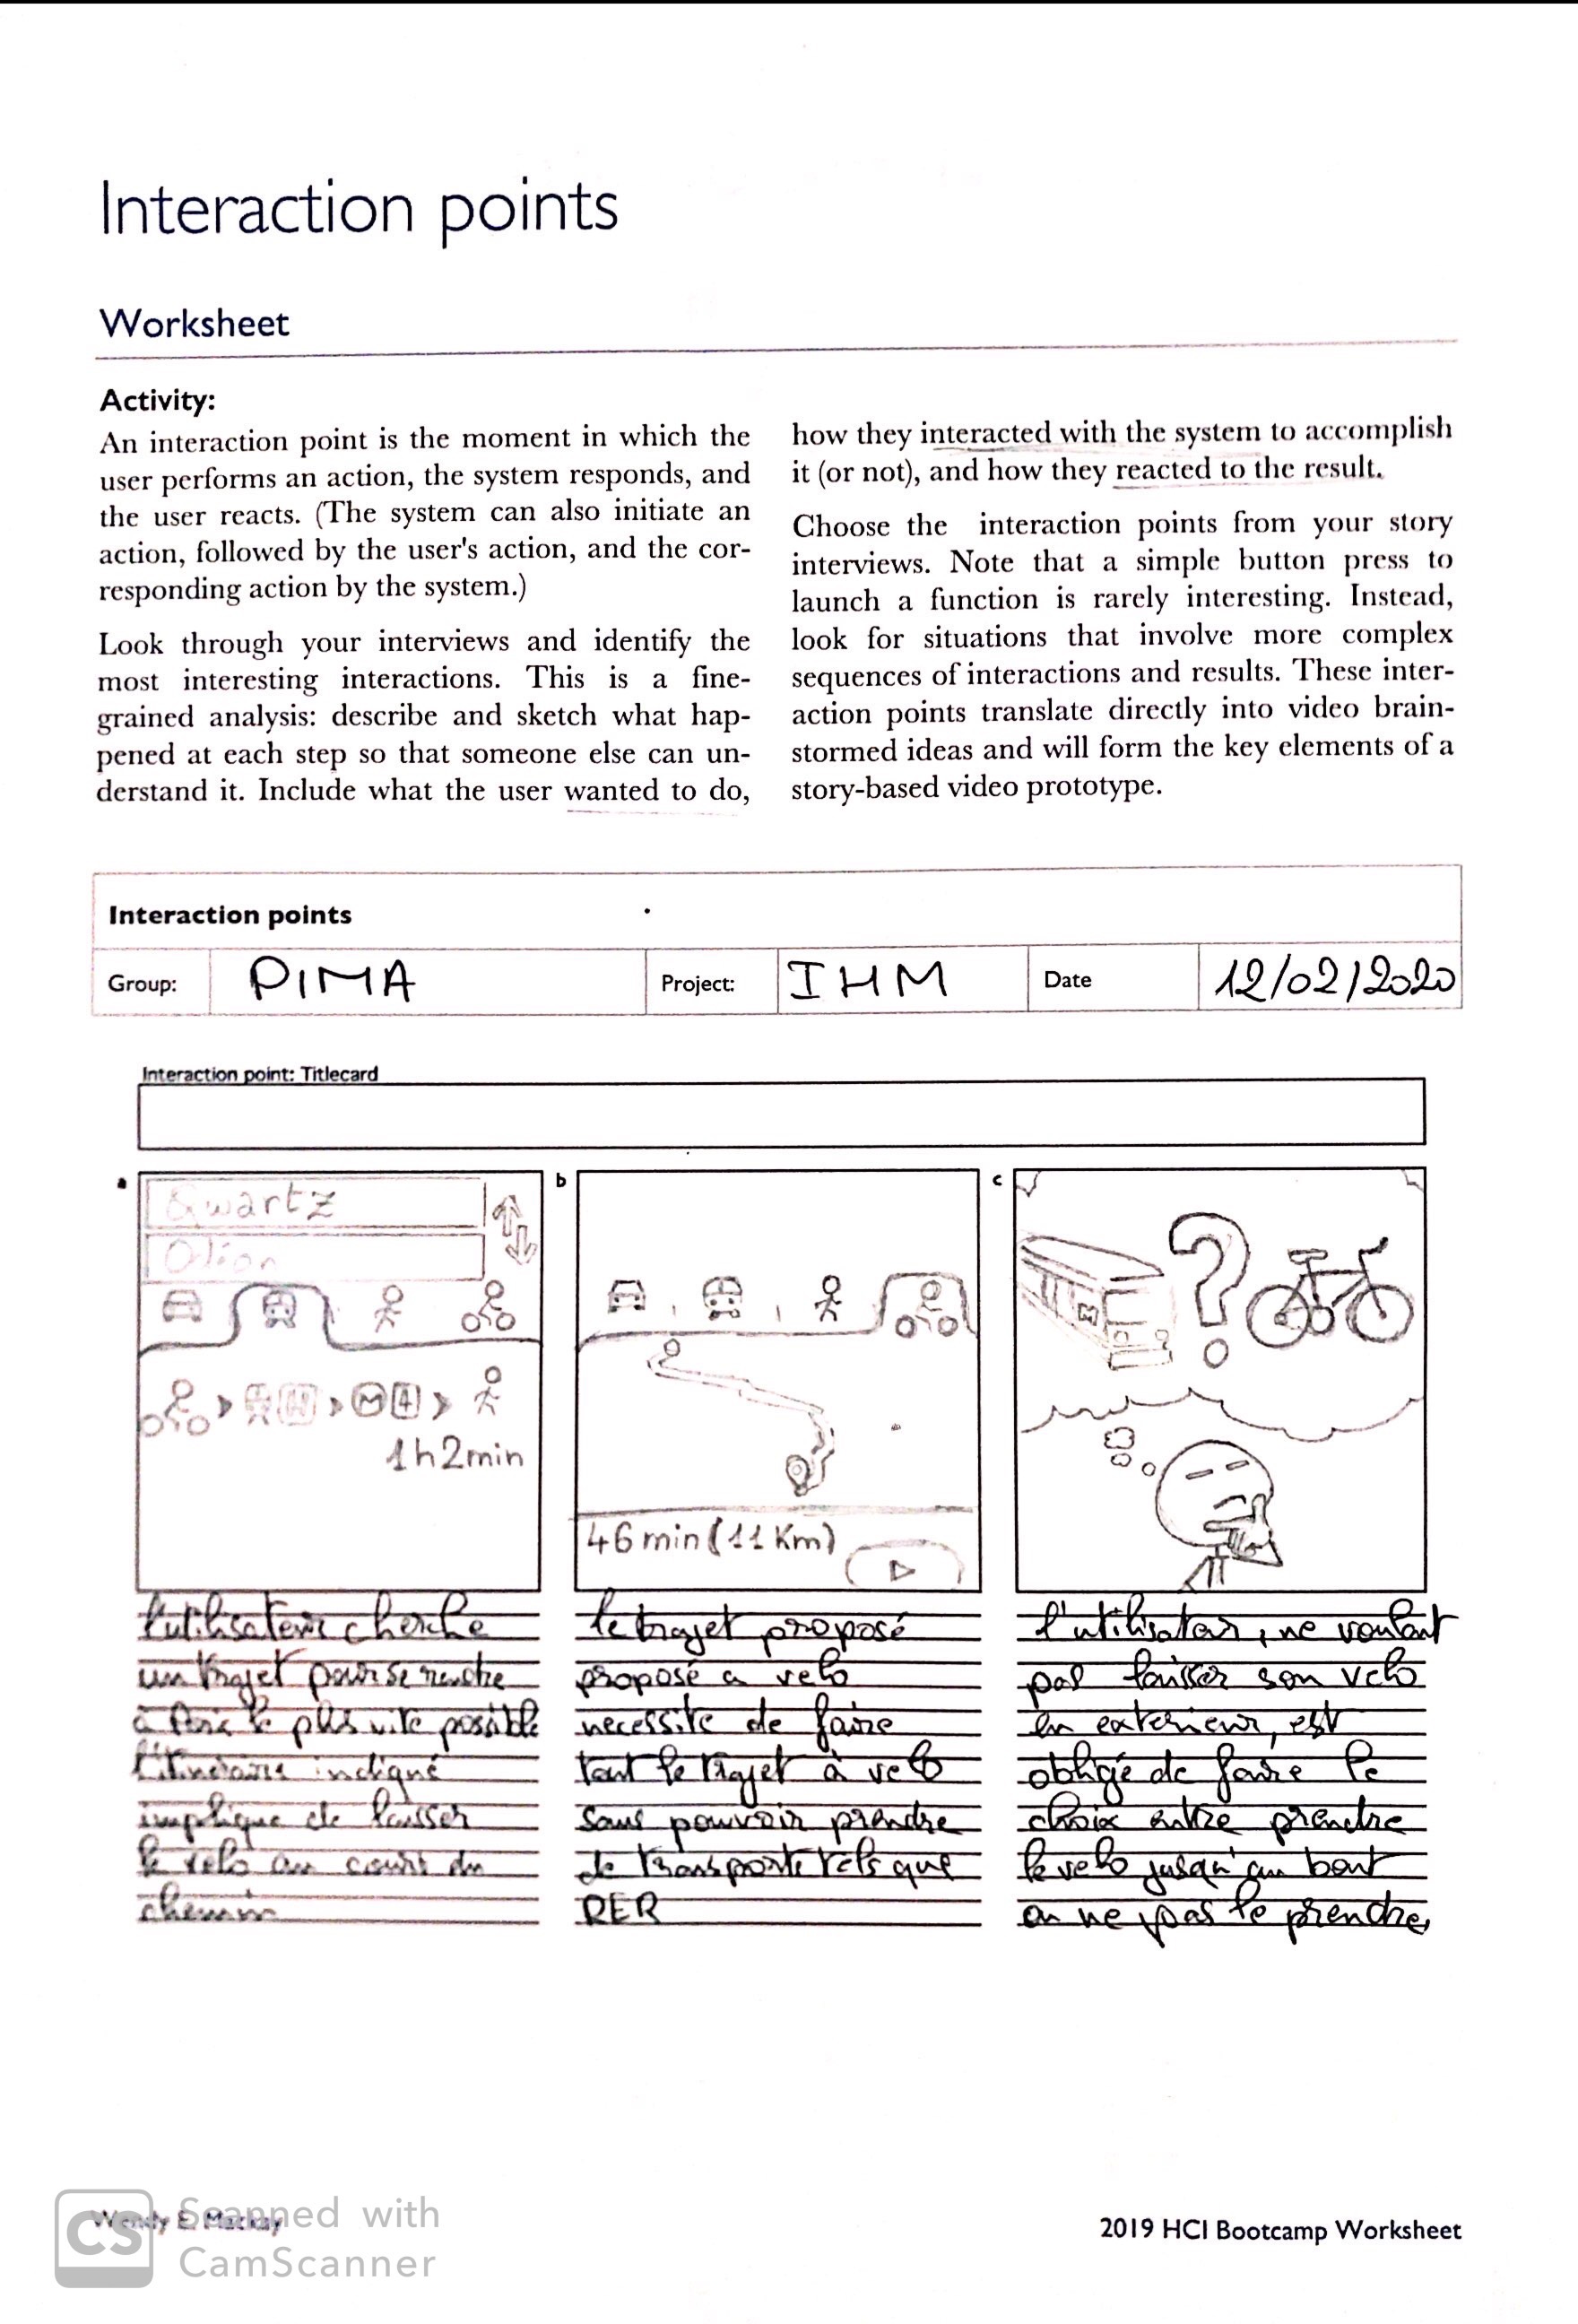 Interaction points
Worksheet
Activity:
An interaction point is the moment in which the
user performs an action, the system responds, and
the user reacts. (The system can also initiate an
action, followed by the user's action, and the cor-
responding action by the system.)
Look through your interviews and identify the
most interesting interactions. This is a fine-
grained analysis: describe and sketch what hap-
pened at each step so that someone else can un-
derstand it. Include what the user wanted to do,
how they interacted with the system to accomplish
it (or not), and how they reacted to the result.
Choose the interaction points from your story
interviews. Note that a simple button press to
launch a function is rarely interesting. Instead,
look for situations that involve more complex
sequences of interactions and results. These inter-
action points translate directly into video brain-
stormed ideas and will form the key elements of a
story-based video prototype.
Interaction points
Group: PIMA Project: IHM Date 12/02/2020
Interaction point: Titlecard
a
Qwartz
M 4
1h2min
l'utilisateur cherche
un trajet pour se rendre
à le plus vite possible
l'itinéraire indiqué
implique de laisser
le velo au cours du
chemin
b
46 min (11 Km)
le trajet proposé
proposé a velo
necessite de faire
tout le trajet à velo
sans pouvoir prendre
de transports tels que
RER
c
M
l'utilisateur, ne voulant
pas laisser son velo
en exterieur, est
obligé de faire le
choix entre prendre
le velo jusqu'au bout
ou ne pas le prendre,
Wendy E. Mackay
CS Scanned with
CamScanner
2019 HCI Bootcamp Worksheet